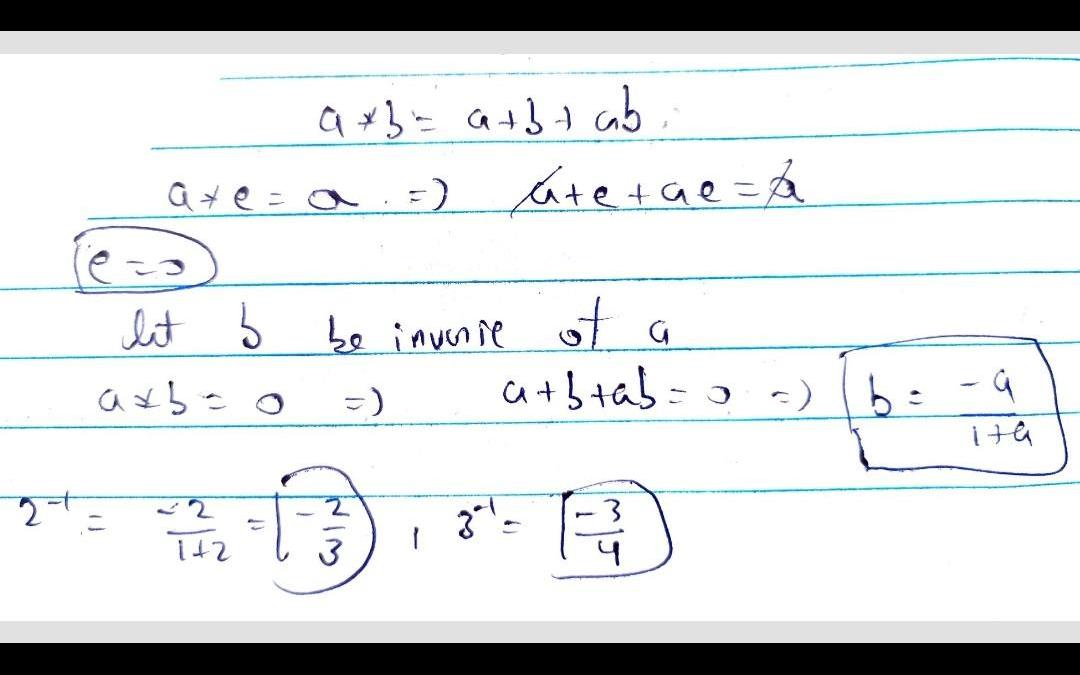 a * b = a + b + ab.
a * e = a. => a + e + ae = a
e = 0
let b be inverse of a
a * b = 0 => a + b + ab = 0 => b = -a/(1+a)
2^-1 = -2/(1+2) = -2/3, 3^-1 = -3/4